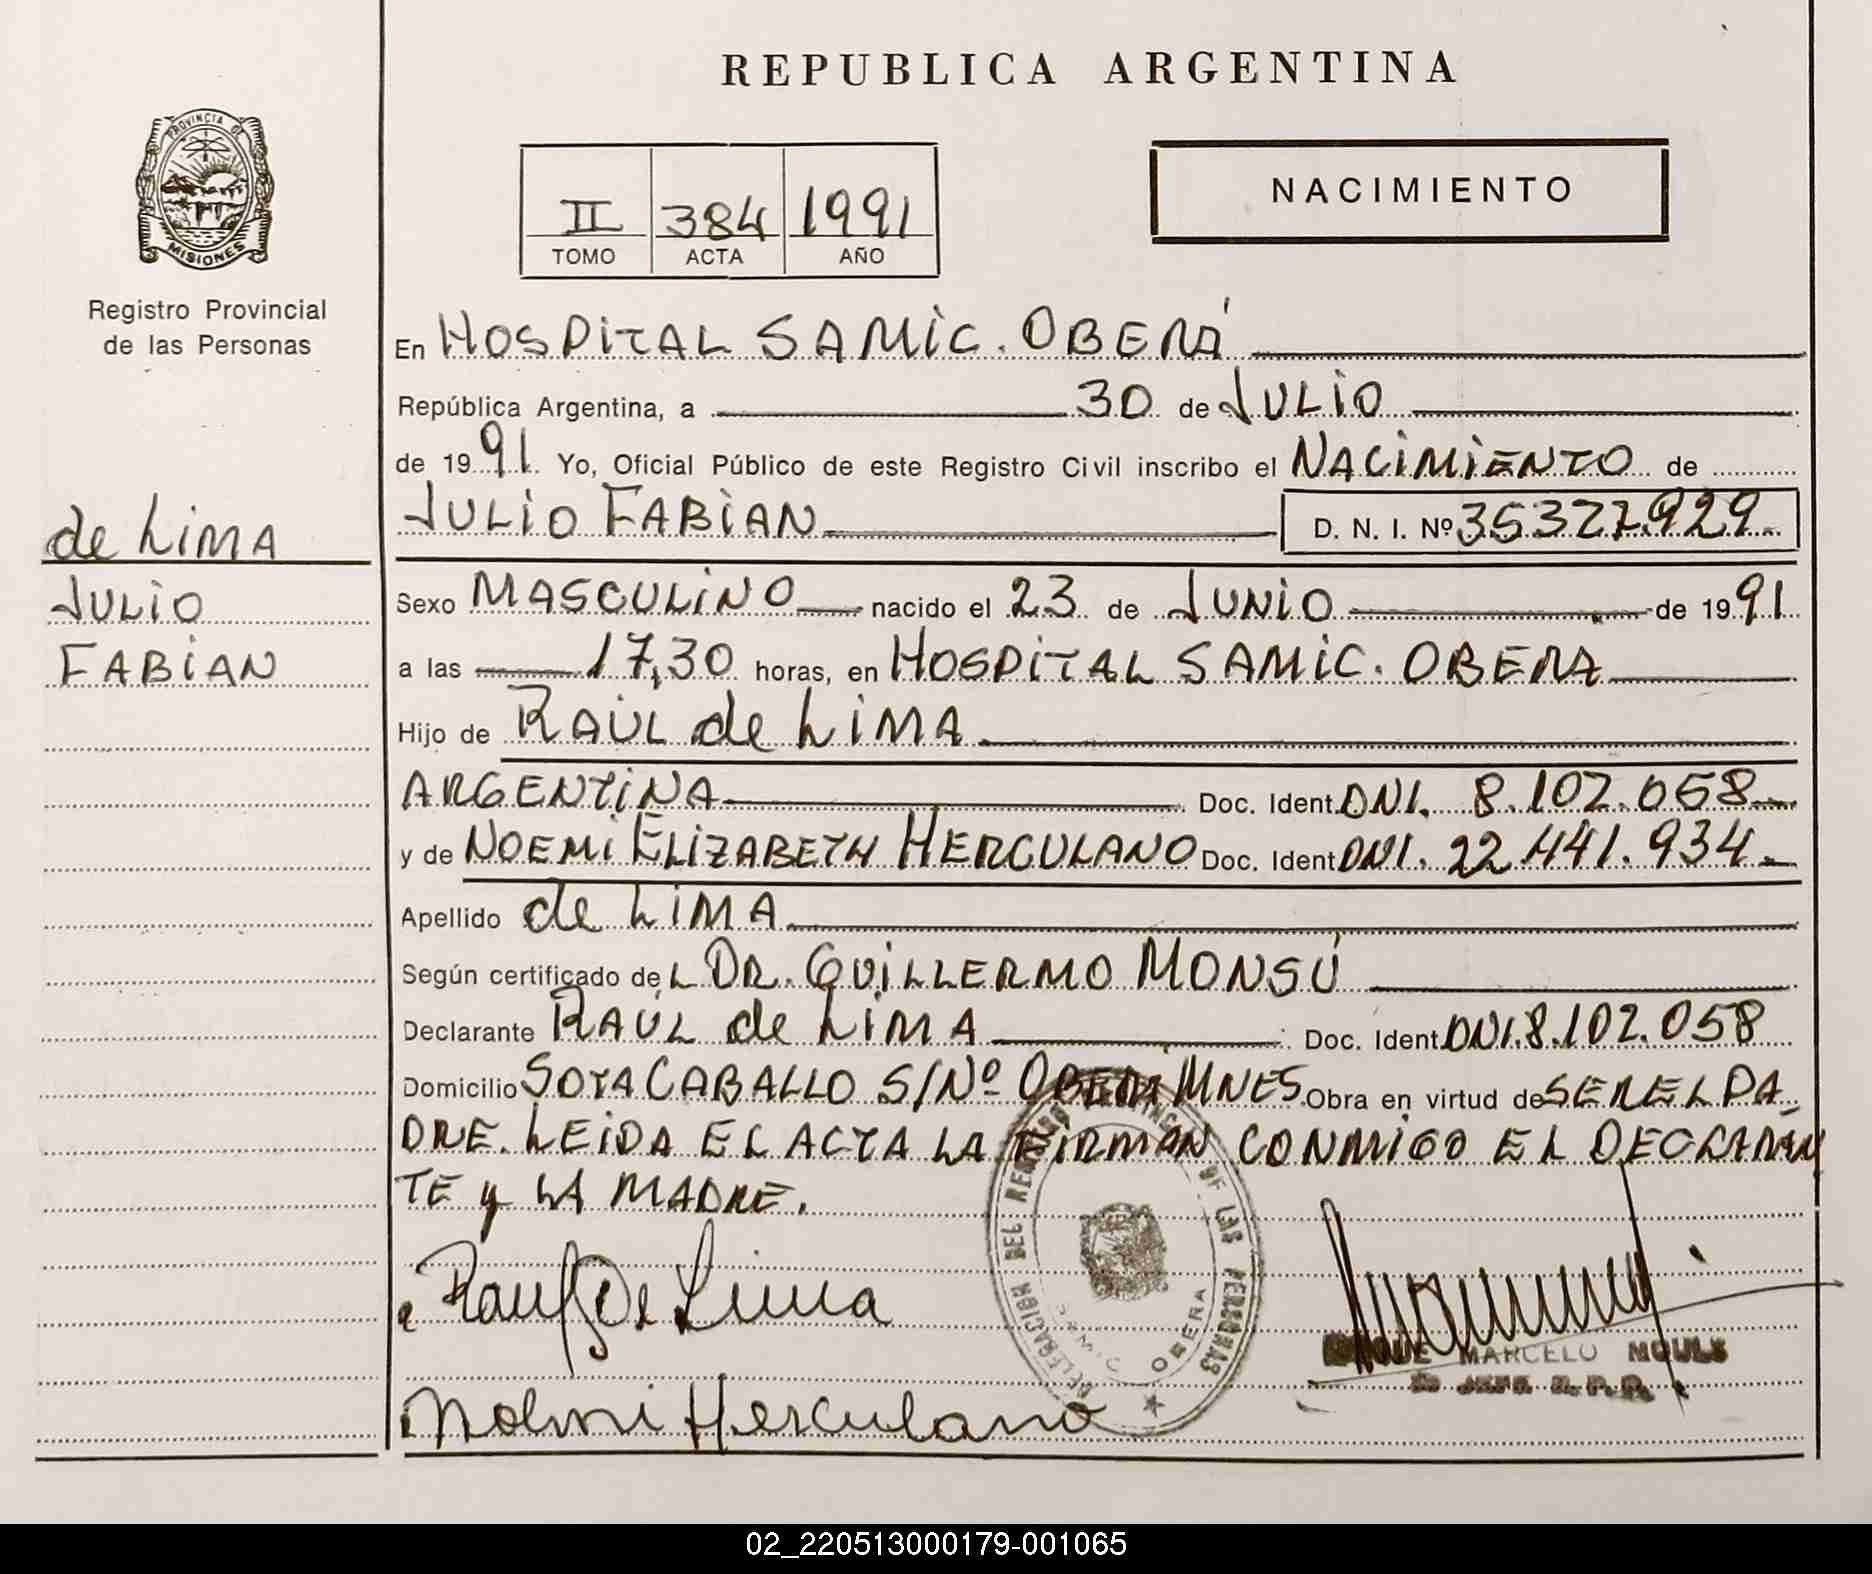 REPUBLICA ARGENTINA
PROVINCIA DE
MISIONES
Registro Provincial
de las Personas
II 384 1991
TOMO ACTA AÑO
NACIMIENTO
de LIMA
JULIO
FABIAN
En HOSPITAL SAMIC. OBERÁ
República Argentina, a 30 de JULIO
de 1991 Yo, Oficial Público de este Registro Civil inscribo el NACIMIENTO de
JULIO FABIAN D. N. I. Nº 35327929
Sexo MASCULINO nacido el 23 de JUNIO de 1991
a las 17,30 horas, en HOSPITAL SAMIC. OBERA
Hijo de RAÚL de LIMA
ARGENTINA Doc. Ident. DNI. 8.102.058
y de NOEMI ELIZABETH HERCULANO Doc. Ident. DNI. 22.441.934
Apellido de LIMA
Según certificado de L DR. GUILLERMO MONSÚ
Declarante RAÚL de LIMA Doc. Ident. DNI. 8.102.058
Domicilio SOTA CABALLO S/Nº OBERA MNES. Obra en virtud de SER EL PA-
DRE. LEIDA EL ACTA LA FIRMAN CONMIGO EL DECLARAN
TE y LA MADRE.
Raul De Lima
Noemi Herculano
DELEGACION DEL REGISTRO PROVINCIAL DE LAS PERSONAS
OBERA
MARCELO
R.P.P.
02_220513000179-001065